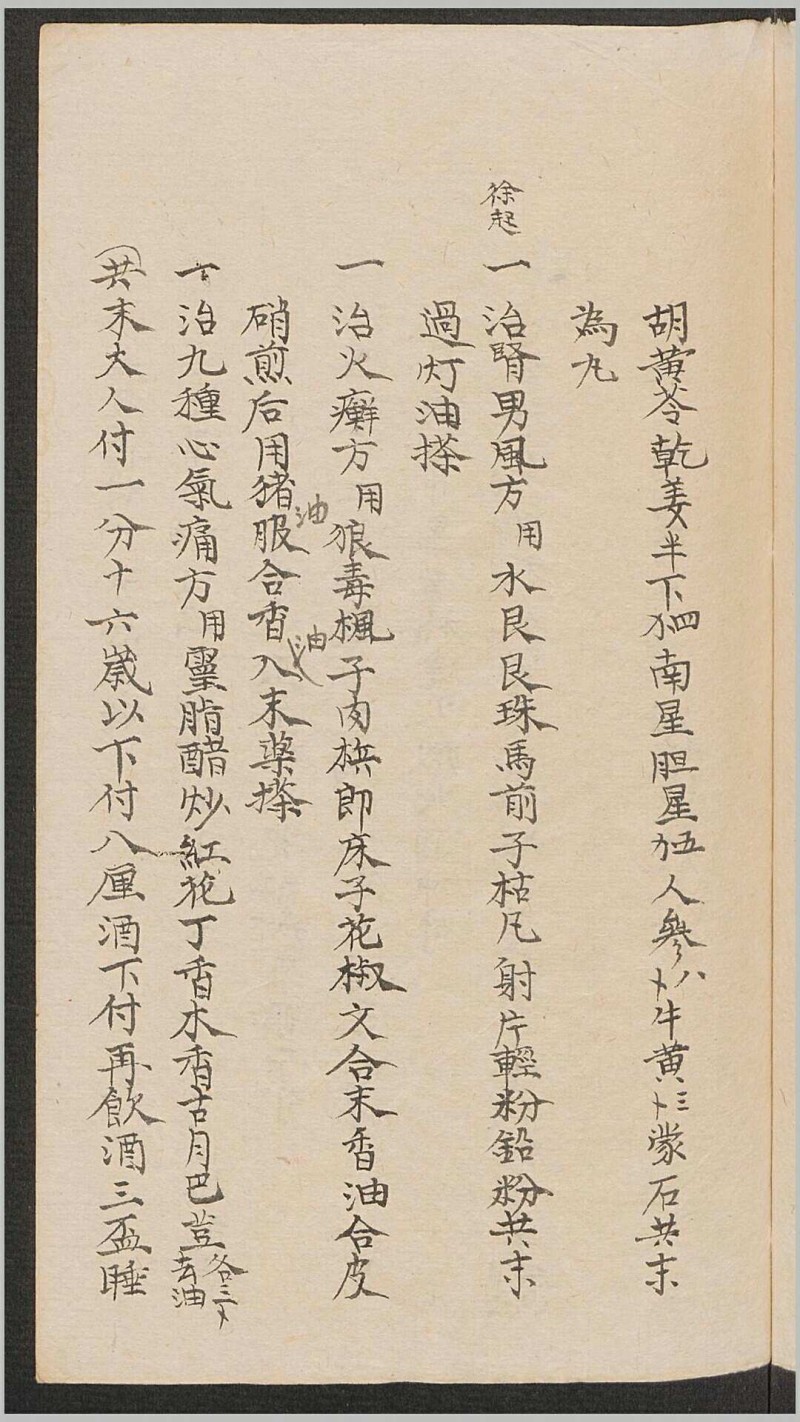 胡黄苓乾姜半下四南星胆星五人參八牛黄三蒙石共末
為丸
徐起
一治腎男風方用水艮艮珠馬前子枯凡射片輕粉鉛粉共末
過灯油搽
一治火癬方用狼毒楓子肉梹郎床子花椒文合末香油合皮
硝煎后用猪油服合香油入末薬搽
一治九種心氣痛方用霊脂醋炒紅花丁香木香古月巴荳各三去油
共末大人付一分十六歳以下付八厘酒下付再飲酒三盃睡